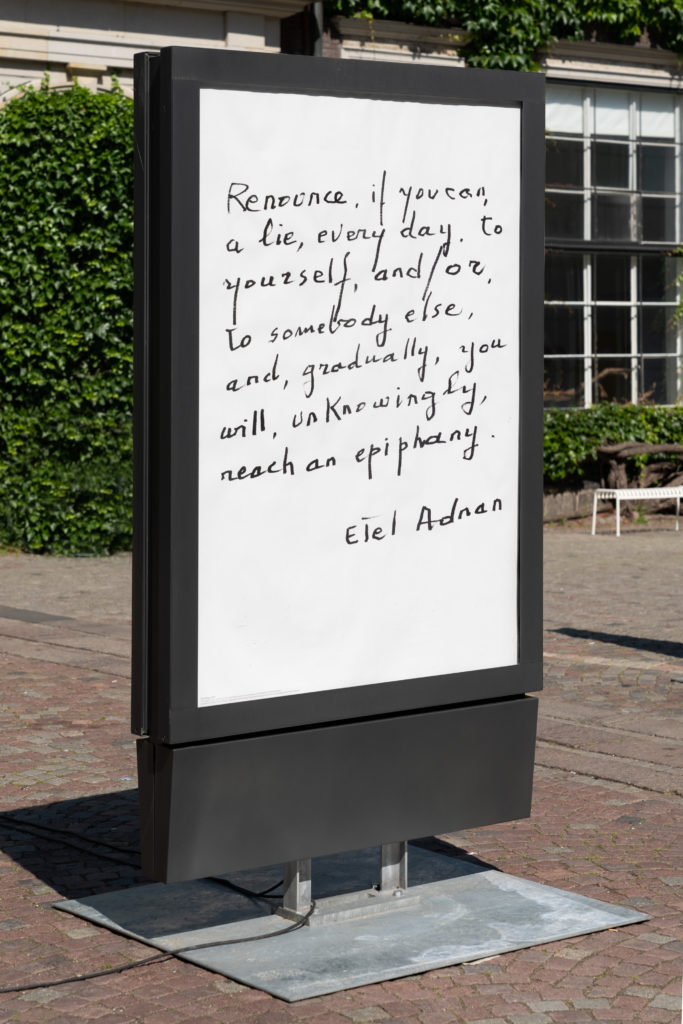 Renounce, if you can,
a lie, every day, to
yourself, and/or,
to somebody else,
and, gradually, you
will, unknowingly,
reach an epiphany.
Etel Adnan